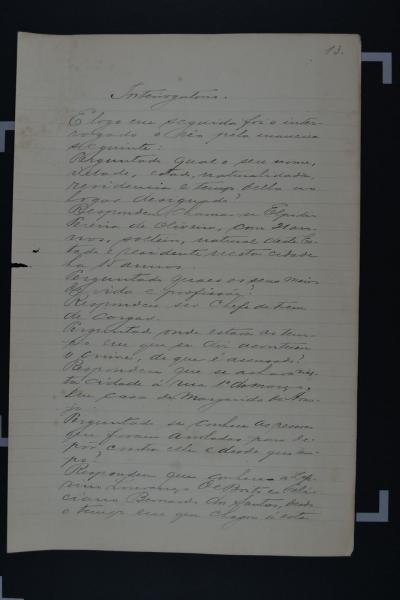 13.
Interrogatorio.
E logo em seguida foi o inter-
rogado o Réo pela maneira
seguinte:
Perguntado qual o seu nome,
idade, estado, naturalidade,
residencia e tempo della no
logar designado?
Respondeu chamar-se
Pereira de Oliveira, com 21 an-
nos, solteiro, natural deste Es-
tado e residente nesta cidade
ha annos.
Perguntado quaes os seus meios
de vida e profissão?
Respondeu ser Chefe de trem
de cargas.
Perguntado onde estava ao tem-
po em que se diz aconteceu
o crime, de que é accusado?
Respondeu que se achava nes-
ta cidade á rua 1º de Março,
em casa de Margarida de
Perguntado se conhece as pessoas
que foram arroladas para de-
pôr contra elle e desde que tem-
po?
Respondeu que conhece a
e Feli-
ciano Bernardo dos Santos, desde
o tempo em que chegou a esta